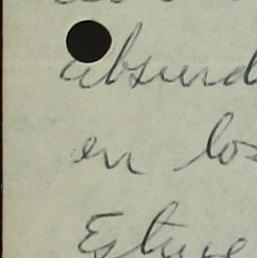 absurd
en los
Estuve